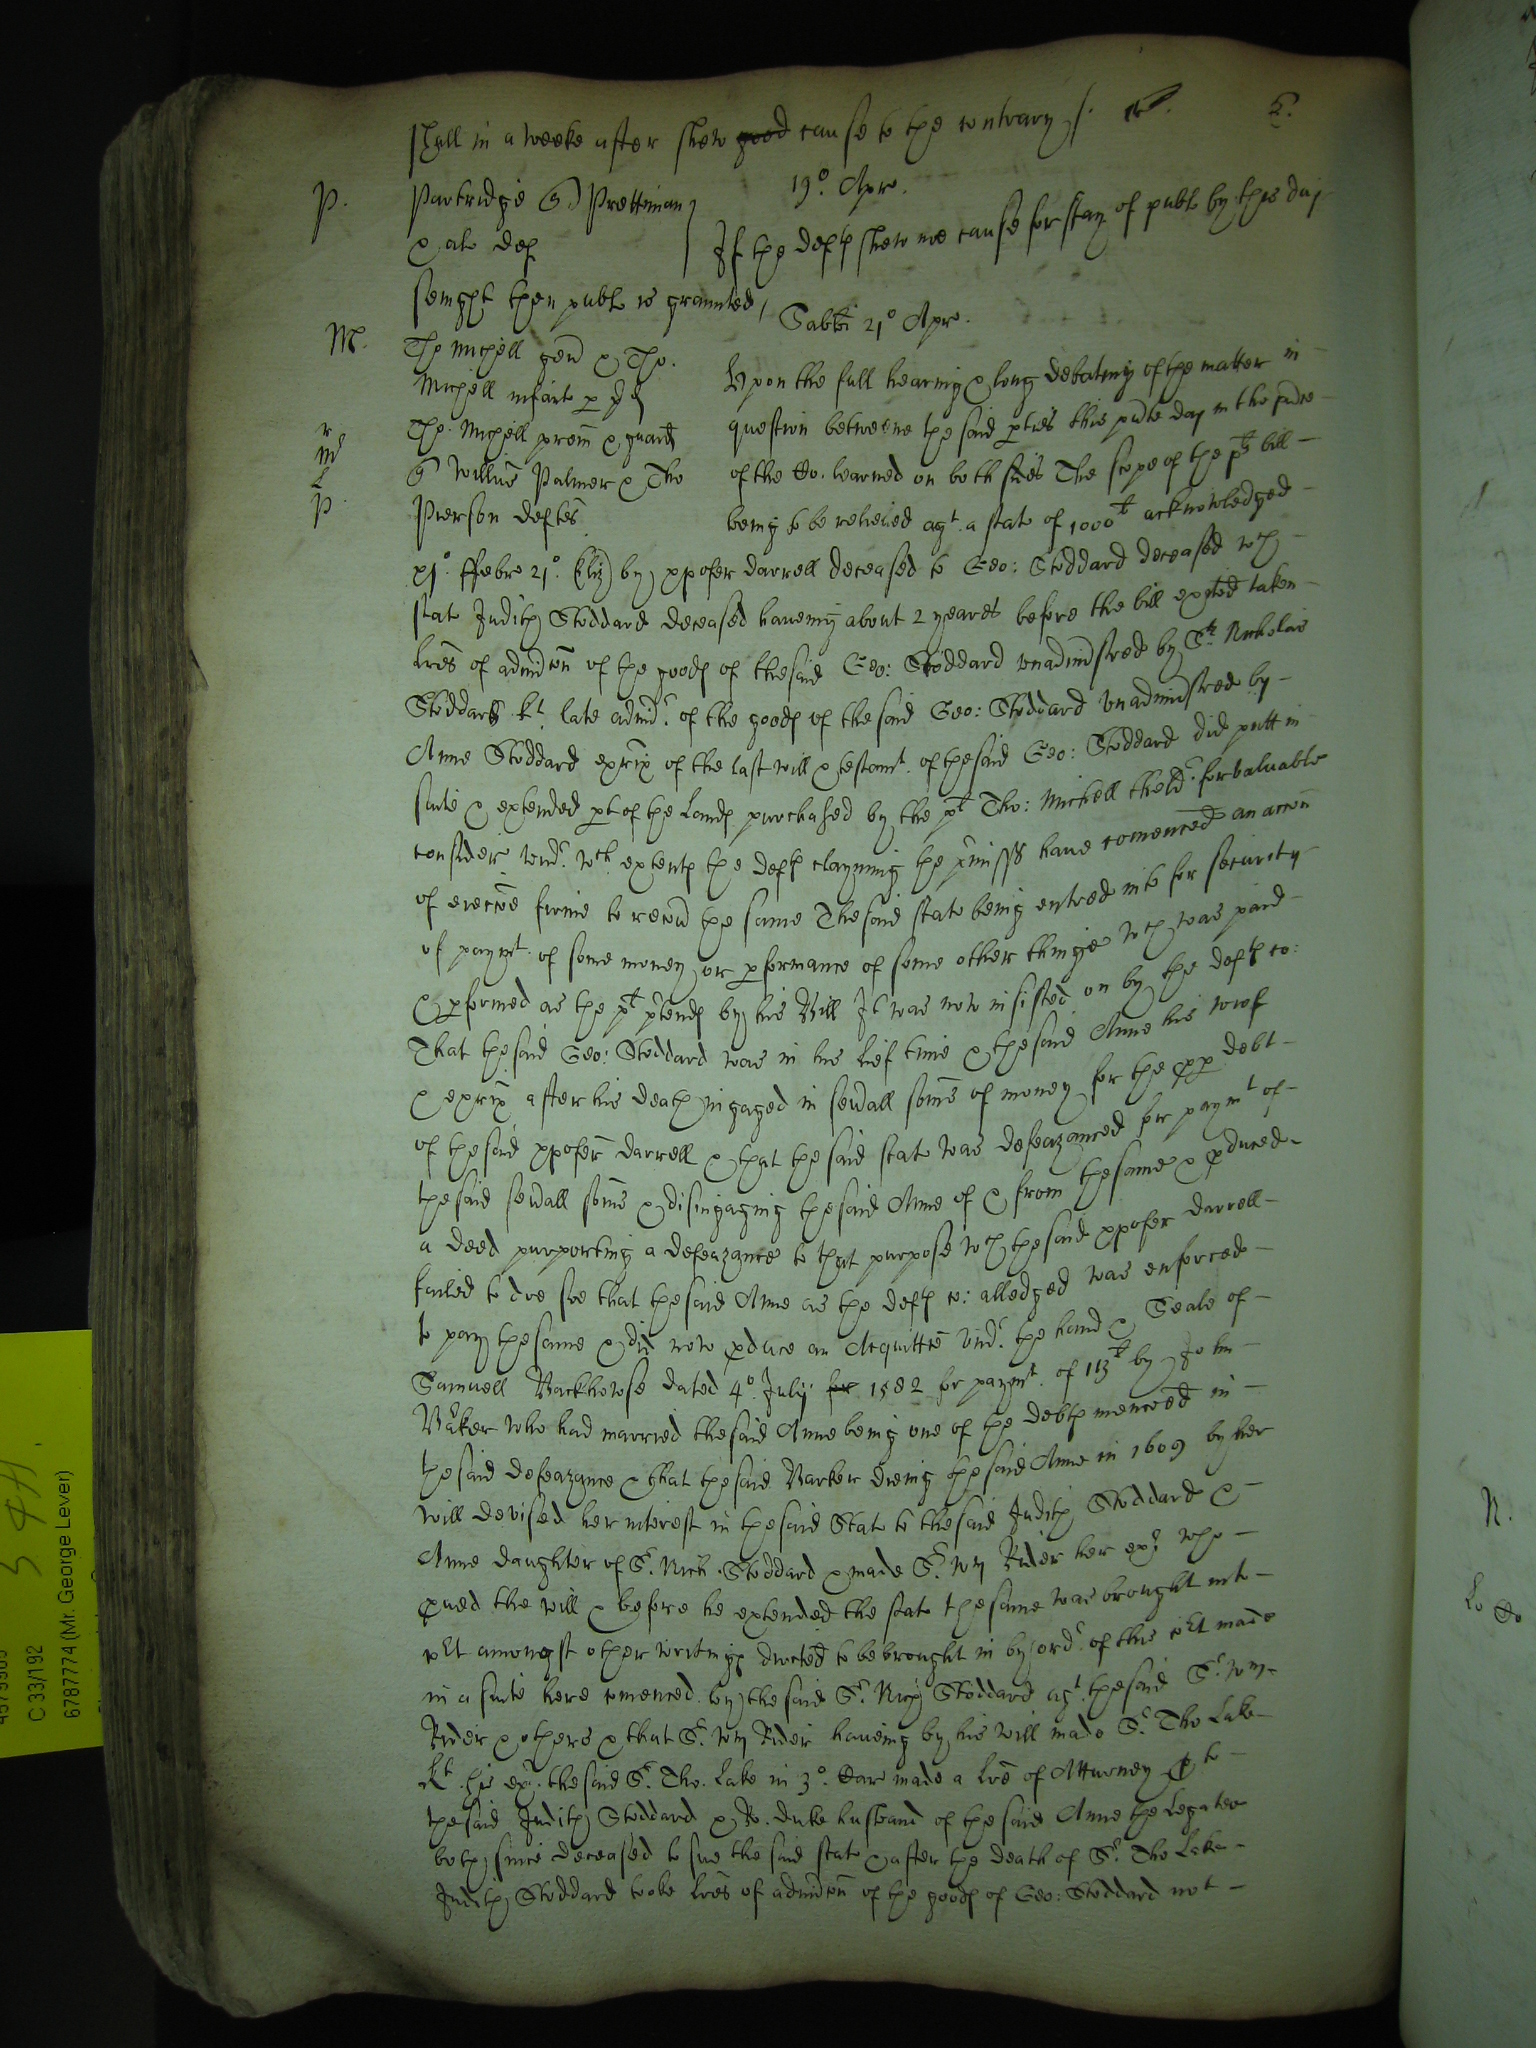 shall in a weeke after shew good cause to the contrary /.
19o. Apr.
P. Partridge Prettiman
& al def
If the deftes shew noe cause for stay of publ by this day
sennight then publ is graunted /
Sabti 21o Apr.
M. Tho Michell gen & Tho.
Michell infant p
Tho: Michell proem & guard
Willm Palmer & Tho
P. Pierson deftes
Upon the full hearing & long debating of the matter in
question betweene the said pties this pnte day in the pnce
of the Co. learned on both sides The scope of the plts bill
being to be relieved agt. a stat of 1000li acknowledged
xjo. ffebr 21o. Eliz by xpofer Darrell deceased to Geo: Stoddard deceased wch
stat Judith Stoddard deceased haveing about 2 yeares before the bill exhited taken
lres of admicon of the goods of the said Geo: Stoddard unadmistred by Sr. Nicholas
Stoddard Kt. late admr. of the goods of the said Geo: Stoddard unadmistred by
Anne Stoddard exrix of the last will & testamt. of the said Geo: Stoddard did putt in
suite & extended pt of the Lands purchased by the plt Tho: Michell thelder. for valuable
consider. wch extents the defts clayming the pmisses have comenced an accon
of eieccoe firme to recover the same The said stat being entred into for security
of paymt. of some money or pformance of some other thinge wch was paid
& pformed as the plt ptends by his Bill It was now insisted on by the defts co:
That the said Geo: Stoddard was in his lief time & the said Anne his wief
& exrix after his death ingaged in severall somes of money for the pp debt
of the said xpofer Darrell & that the said stat was defeazanced for paymt of
the said severall somes & disingaging the said Anne of & from the same & pduced
a deed purporting a defeazance to that purpose wch the said xpofer Darrell
failed to doe soe that the said Anne as the defts co: alledged was enforced
to pay the same & did now pduce an Acquittce under the hand & Seale of
Samuell Backhowse dated 4o. July for 1582 for paymt. of 113li by John
Barker who had married the said Anne being one of the debts menconed in
the said defeazance & that the said Barker dieing the said Anne in 1609 by her
will devised her interest in the said Stat to the said Judith Stoddard &
Anne daughter of Sr. Nich. Stoddard & made Sr. Wm Rider her exr. who
pved the will & before he extended the stat the same was brought into
cort amongst other writings directed to be brought in by order. of this cort made
in a suite here comenced by the said Sr. Nich Stoddard agt. the said Sr. Wm
Rider & others & that Sr. Wm Rider haveing by his will made Sr. Tho Lake
Kt. his exr. the said Sr. Tho. Lake in 3o. Car made a lre of Atturney to
the said Judith Stoddard & Ro. Duke husband of the said Anne the legatee
both since deceased to sue the said stat & after the death of Sr. Tho Lake
Judith Stoddard tooke lres of admicon of the goods of Geo: Stoddard not
C 33/192
6787774 (Mr. George Lever)